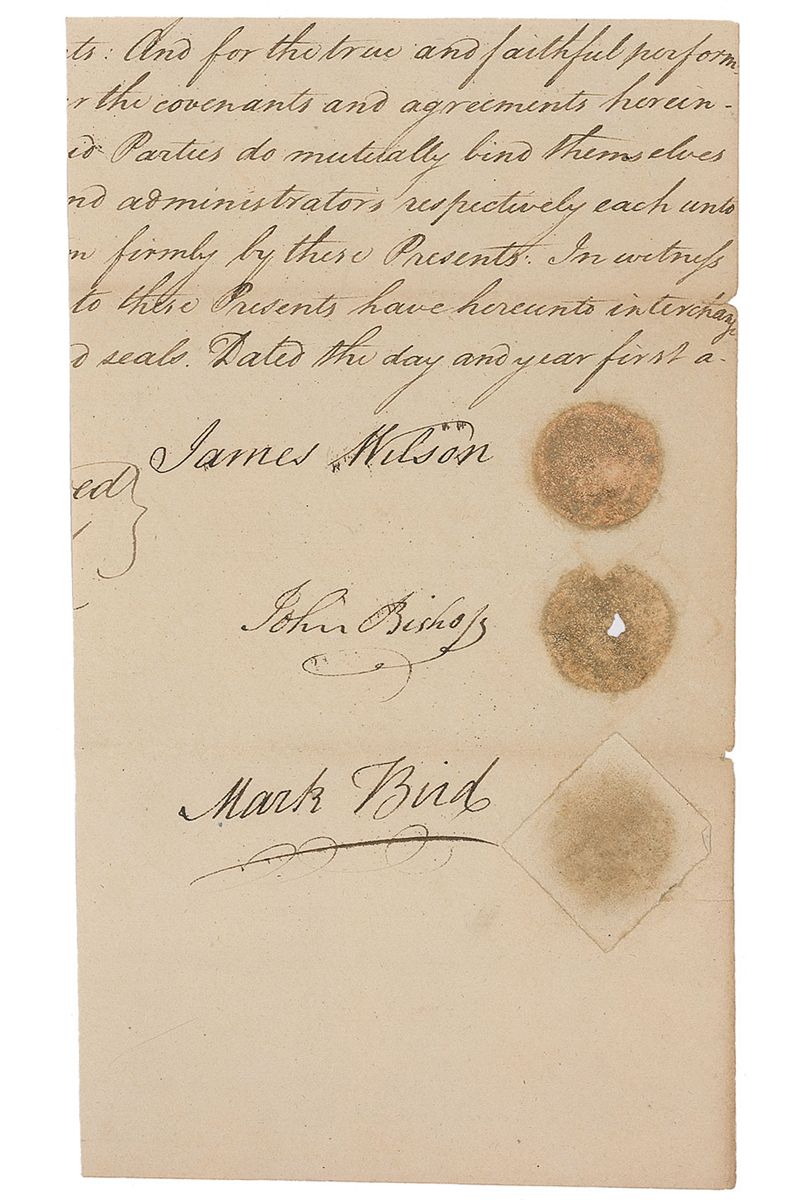 ts: And for the true and faithful perform-
r the covenants and agreements herein-
id Parties do mutually bind themselves
nd administrators respectively each unto
n firmly by these Presents: In witness
to these Presents have hereunto interchange
d seals. Dated the day and year first a-
James Wilson
ed
John Bishop
Mark Bird